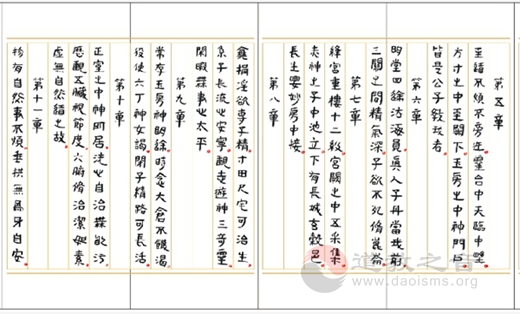 第五章
至道不煩不旁迕靈台中天臨中野
方寸之中至關下玉房之中神門戶
皆是公子教我者
第六章
明堂四達法海員真人子丹當我前
三關之間精氣深子欲不死修崑崙
第七章
絳宮重樓十二級宮闕之中五采集
赤神之子中池立下有長城玄穀邑
長生要妙房中棘
第八章
棄捐淫欲專子精寸田尺宅可治生
系子長流心安寧觀志遊神三奇靈
閒暇無事心太平
第九章
常存玉房神明達時念大倉不飢渴
役使六丁神女謁閉子精路可長活
第十章
正室之中神所居洗心自治無敢污
歷觀五臟視節度六腑修治潔如素
虛無自然道之故
第十一章
物有自然事不煩垂拱無為身自安
道教之音
www.daoisms.org